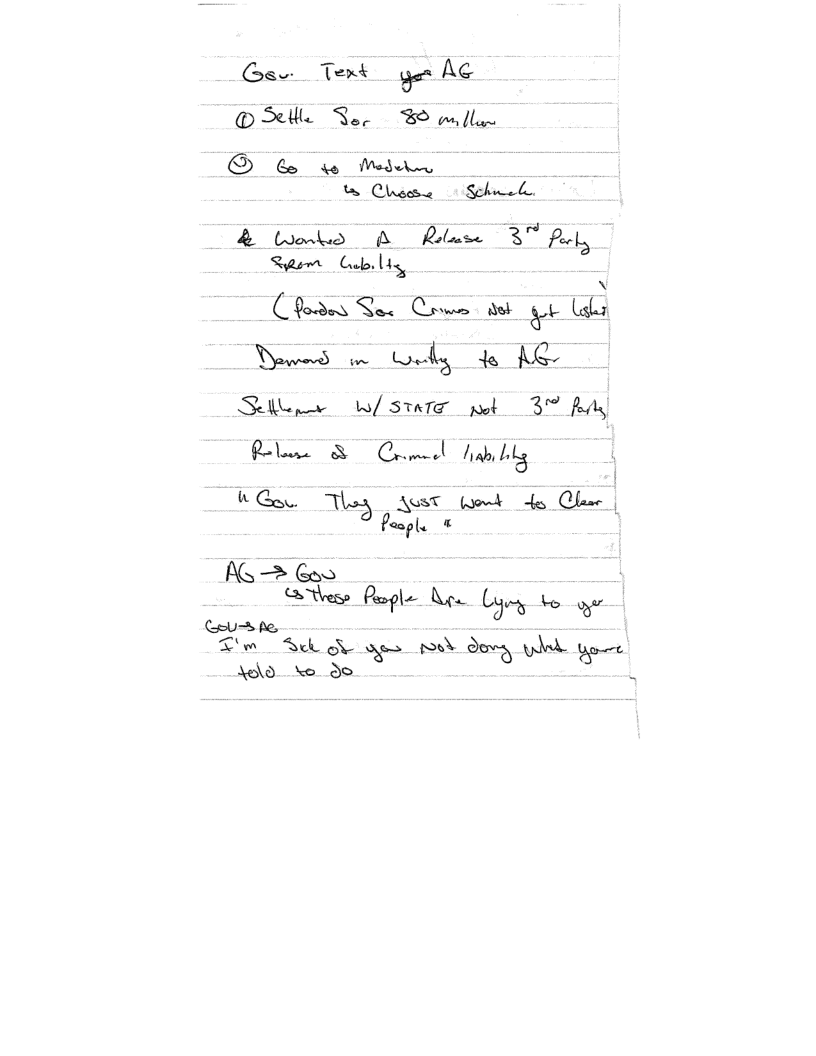 Gov. Text AG
① Settle for 80 million
② Go to
↳ Choose
Wanted A Release 3rd Party
From liability
(Pardon for Crimes Not yet listed
Demand in writing to AG
Settlement w/ STATE Not 3rd Party
Release of Criminal liability
"Gov. They JUST want to Clear
People"
AG → Gov
↳ These People Are Lying to you
GOV → AG
I'm Sick of you Not doing what you're
told to do